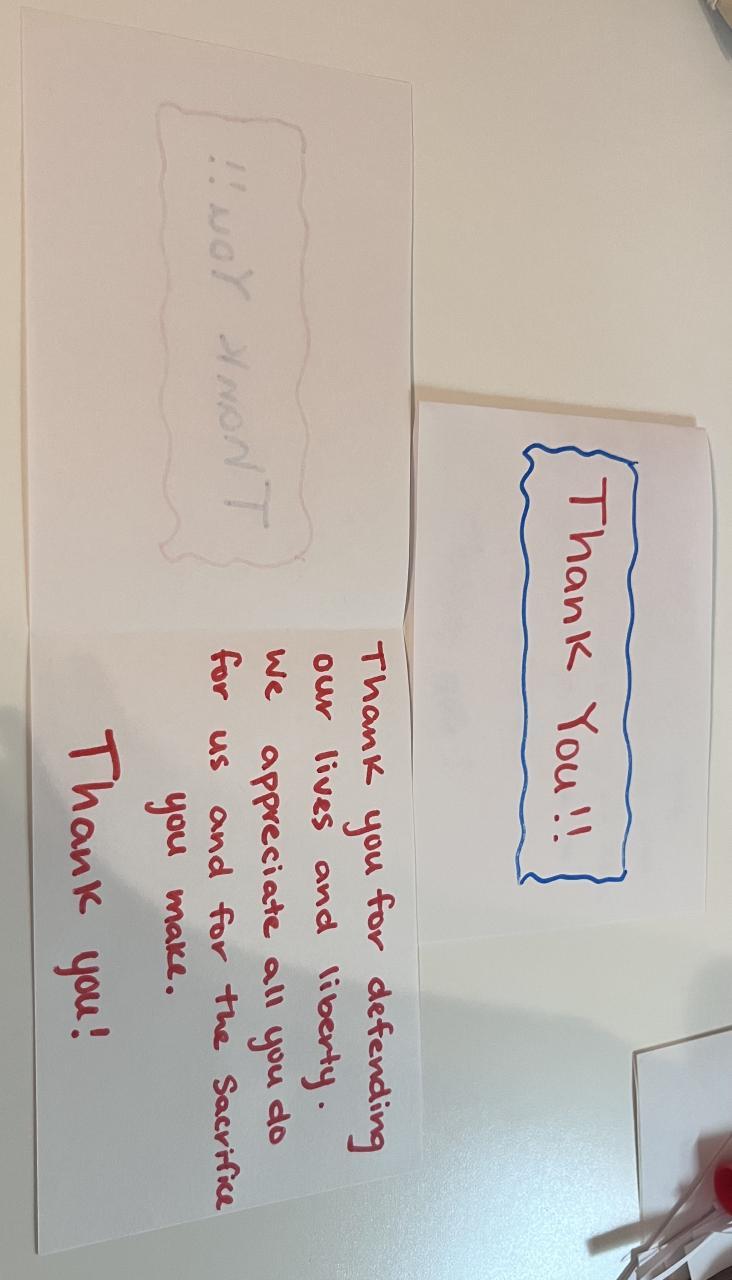 Thank You!!
Thank you for defending
our lives and liberty.
We appreciate all you do
for us and for the sacrifice
you make.
Thank you!
Thank You!!